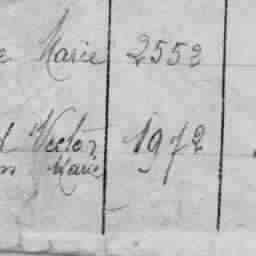 e Marie 2552
d Victor 1972
n Marie